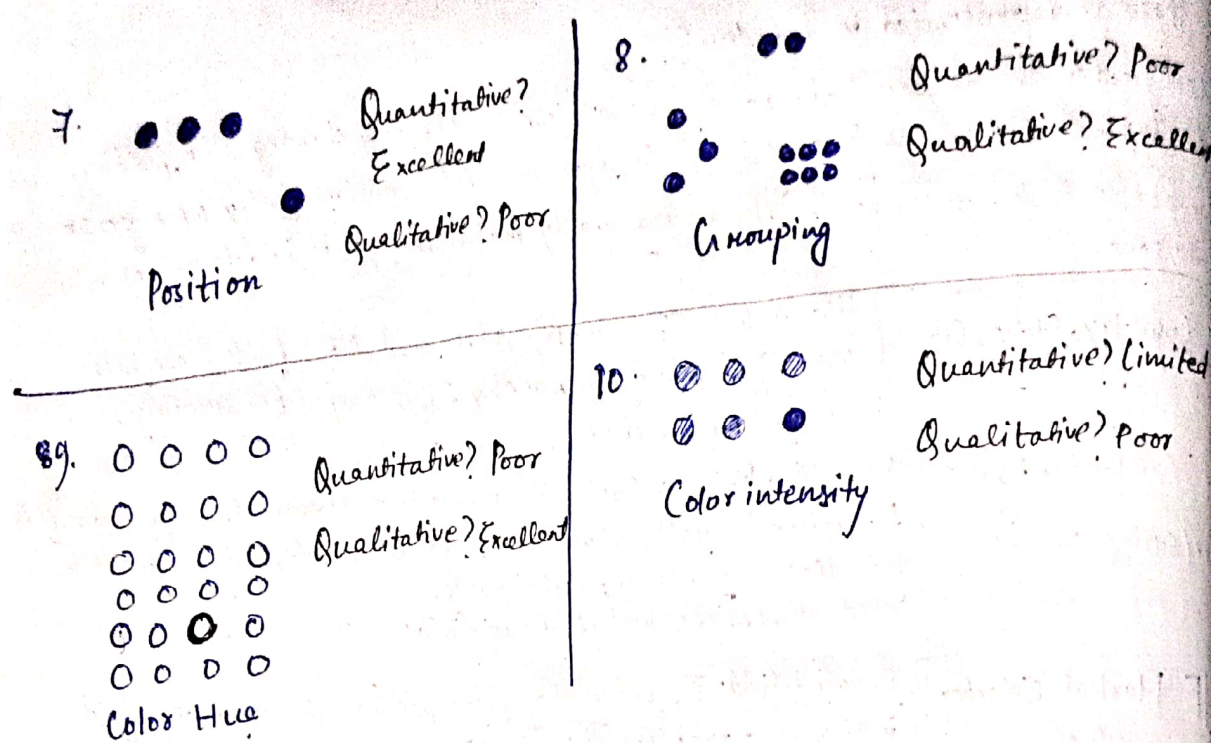 7.
Quantitative?
Excellent
Qualitative? Poor
Position
8.
Quantitative? Poor
Qualitative? Excellen
Grouping
9.
Quantitative? Poor
Qualitative? Excellent
Color Hue
10.
Quantitative? Limited
Qualitative? Poor
Color intensity